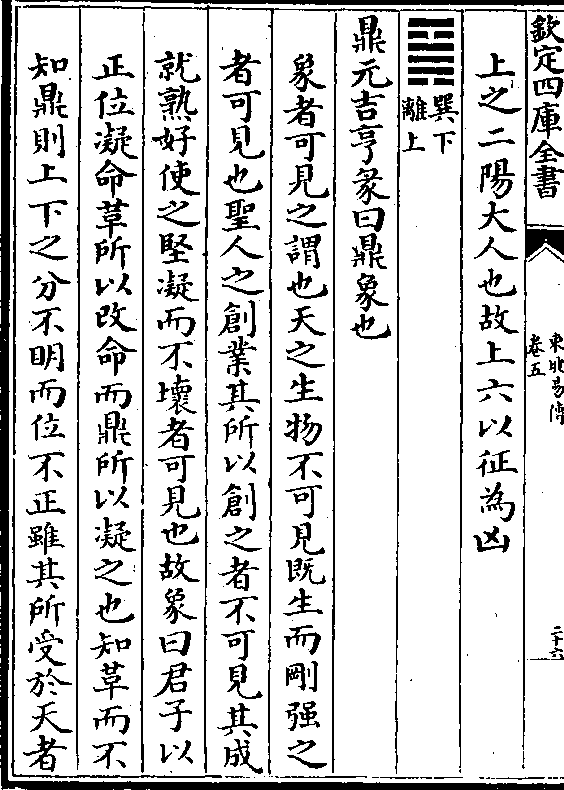 欽定四庫全書
東坡易傳
卷五
二十六
上之二陽大人也故上六以征為凶
巽下
離上
鼎元吉亨彖曰鼎象也
象者可見之謂也天之生物不可見既生而剛强之
者可見也聖人之創業其所以創之者不可見其成
就熟好使之堅凝而不壞者可見也故象曰君子以
正位凝命革所以改命而鼎所以凝之也知革而不
知鼎則上下之分不明而位不正雖其所受於天者